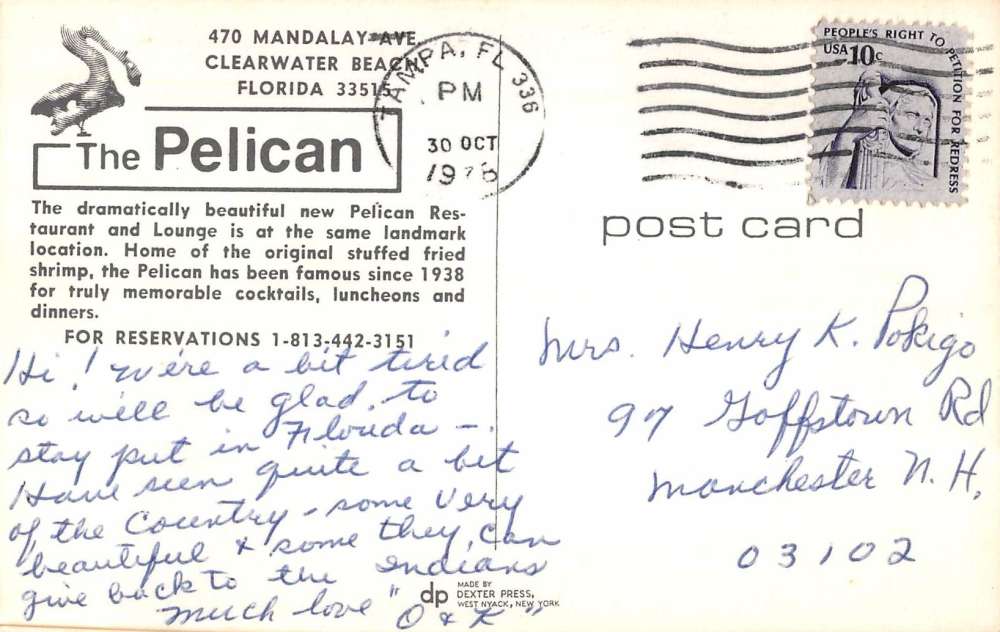 470 MANDALAY AVE
CLEARWATER BEACH
FLORIDA 33515
The Pelican
The dramatically beautiful new Pelican Res-
taurant and Lounge is at the same landmark
location. Home of the original stuffed fried
shrimp, the Pelican has been famous since 1938
for truly memorable cocktails, luncheons and
dinners.
FOR RESERVATIONS 1-813-442-3151
Hi! We're a bit tired
so will be glad to
stay put in Florida -
Have seen quite a bit
of the Country - some very
beautiful & some they can
give back to the Indians
Much love "O & K"
dp MADE BY
DEXTER PRESS,
WEST NYACK, NEW YORK
TAMPA, FL 336
PM
30 OCT
197
PEOPLE'S RIGHT TO PETITION FOR REDRESS
USA 10c
post card
Mrs. Henry K. Pokigo
97 Goffstown Rd
Manchester N.H.
03102